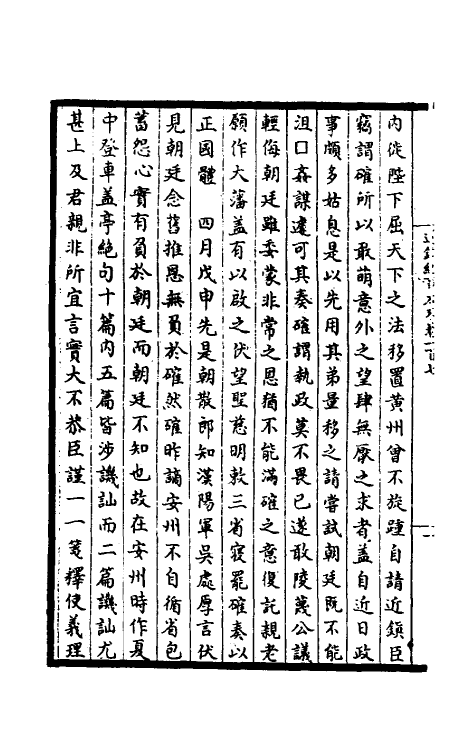 內徙陛下屈天下之法移置黃州曾不旋踵自請近鎮臣
竊謂確所以敢萌意外之望肆無厭之求者蓋自近日政
事頗多姑息是以先用其弟量移之請嘗試朝廷既不能
沮口姦謀遽可其奏確謂執政莫不畏已遂敢陵蔑公議
輕侮朝廷雖委蒙非常之恩猶不能滿確之意復託親老
願作大藩蓋有以啟之伏望聖慈明敕三省寢罷確奏以
正國體　四月戊申先是朝散郎知漢陽軍吳處厚言伏
見朝廷念舊推恩無負於確然確昨謫安州不自循省包
蓄怨心實有負於朝廷而朝廷不知也故在安州時作夏
中登車蓋亭絕句十篇內五篇皆涉譏訕而二篇譏訕尤
甚上及君親非所宜言實大不恭臣謹一一箋釋使義理